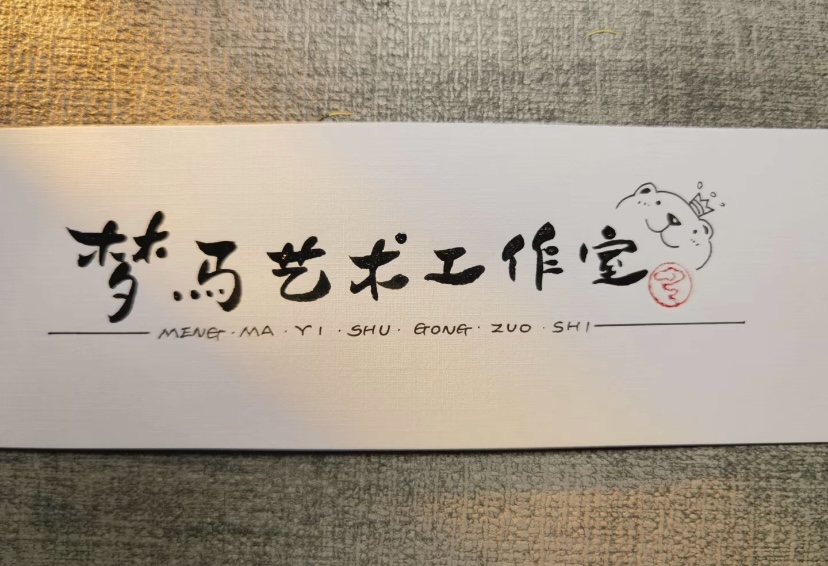 梦马艺术工作室
MENG·MA·YI·SHU·GONG·ZUO·SHI